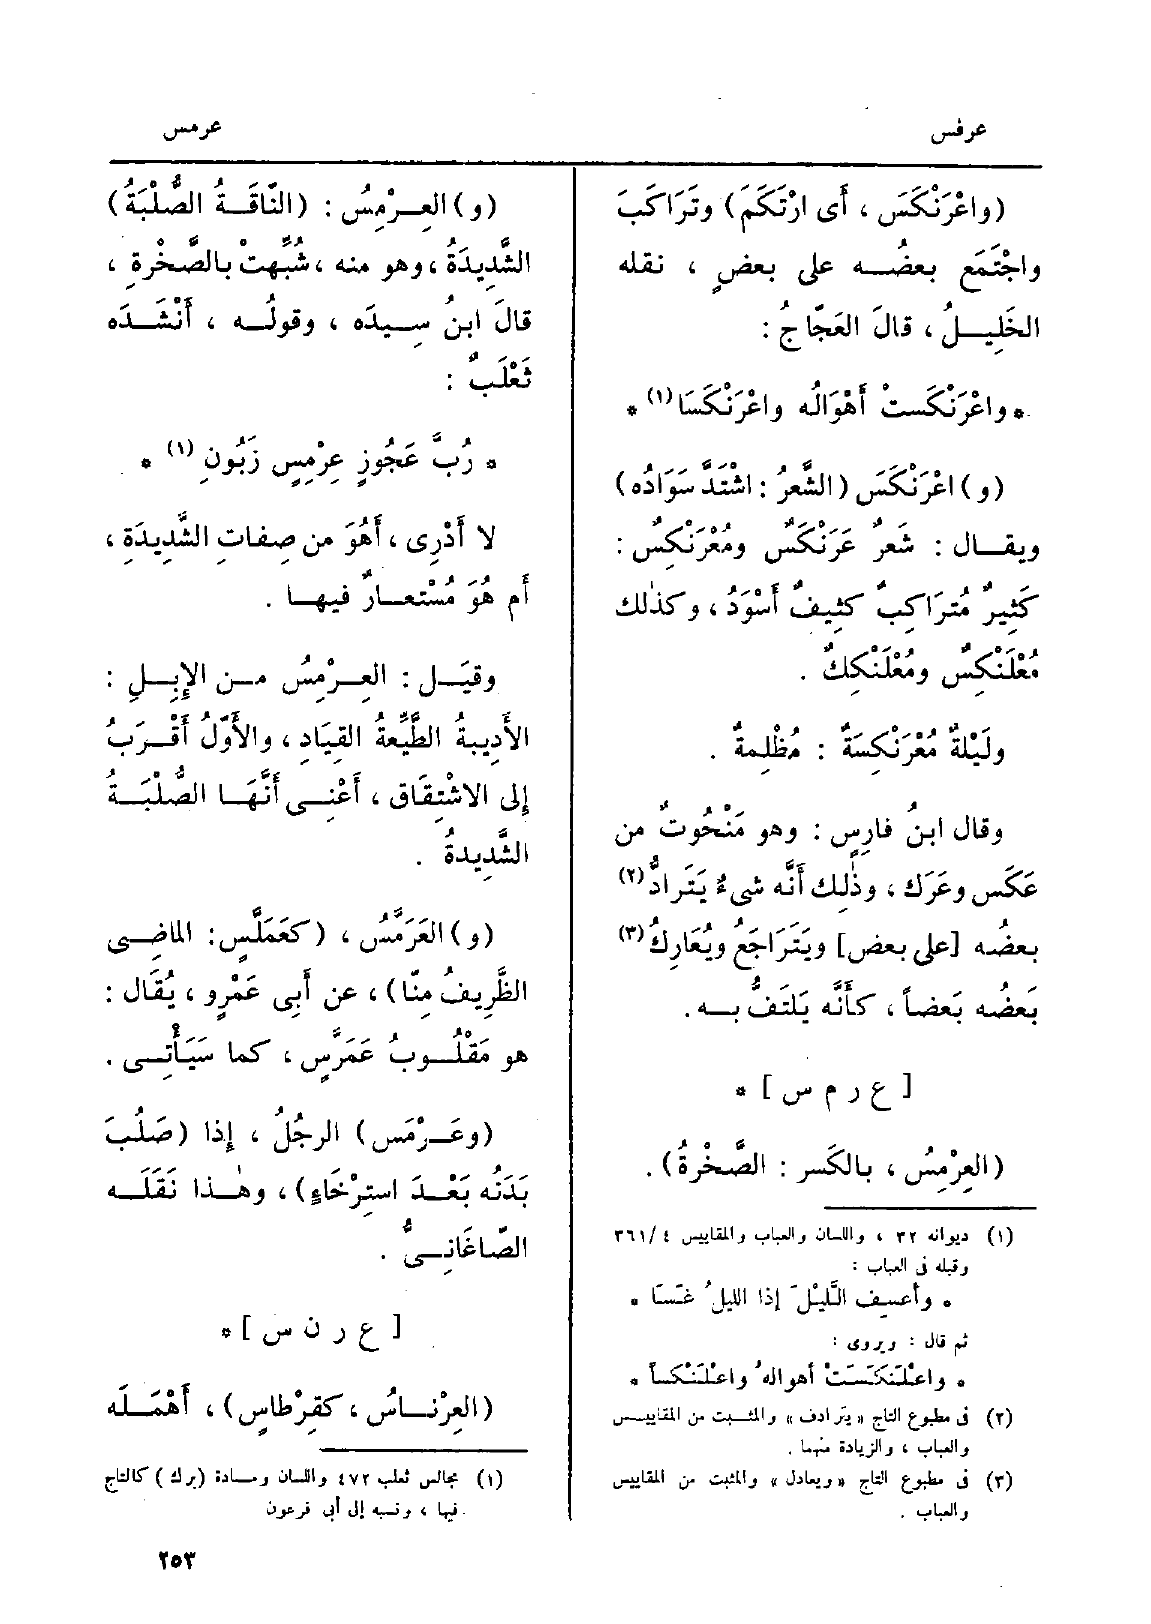 عرفس
عرمس
(واعْرَنْكَسَ ، أَى ارْتَكَمَ) وتَرَاكَبَ
واجْتَمَع بعضُـه على بعضٍ ، نقله
الخَلِيـلُ ، قالَ العَجّاجُ :
* واعْرَنْكَستْ أَهْوَالُه واعْرَنْكَسَا (١) *
(و) اعْرَنْكَسَ (الشَّعرُ : اشْتَدَّ سَوَادُه)
ويقـال : شَعرٌ عَرَنْكَسٌ ومُعْرَنْكِسٌ :
كَثِيرٌ مُتَراكِبٌ كثِيفٌ أَسْوَدُ ، وكذٰلك
مُعْلَنْكِسٌ ومُعْلَنْكِكٌ .
ولَيْلَةٌ مُعْرَنْكِسَةٌ : مُظْلِمةٌ .
وقال ابنُ فارِسٍ : وهو مَنْحُوتٌ من
عَكَس وعَرَك ، وذٰلِك أَنَّه شىءٌ يَتَرادُّ (٢)
بعضُه [على بعض] ويَتَرَاجَعُ ويُعَارِكُ (٣)
بَعضُه بَعضاً ، كأَنَّه يَلتَفُّ بـه .
[ ع ر م س ] *
(العِرْمِسُ ، بالكَسر : الصَّخْرةُ) .
(١) ديوانه ٣٢ ، واللسان والعباب والمقاييس ٤ /٣٦١
وقبله فى العباب :
* وأعسِف اللَّيْلَ إذا الليلُ غَسَا *
ثم قال : ويروى :
* واعْلَنكَسَتْ أهوالهُ واعْلَنْكساً *
(٢) فى مطبوع التاج « يترادف » والمثبت من المقاييس
والعباب ، والزيادة منهما .
(٣) فى مطبوع التاج « ويعادل » والمثبت من المقاييس
والعباب .
(و) العِـرْمِسُ : (النّاقَـةُ الصُّلْبَةُ)
الشَّدِيدَةُ ، وهو منه ، شُبِّهتْ بالصَّخْرةِ ،
قالَ ابنُ سِـيدَه ، وقولُـه ، أَنْشَدَه
ثَعْلَبٌ :
* رُبَّ عَجُوزٍ عِرْمِسٍ زَبُونِ (١) *
لا أَدْرِى ، أَهُوَ من صِفاتِ الشَّدِيدَةِ ،
أَم هُوَ مُسْتعـارٌ فيهـا .
وقيَـل : العِـرمِسُ مـن الإِبِـلِ :
الأَدِيبةُ الطَّيِّعةُ القِيَادِ ، والأَوّلُ أَقْـرَبُ
إِلى الاشْتِقَاق ، أَعْنِـى أَنَّهَـا الصُّلْبَـةُ
الشَّدِيدةُ .
(و) العَرَمَّسُ ، (كعَمَلَّسٍ : الماضِـى
الظَّرِيفُ مِنّا) ، عن أَبِى عَمْرٍو ، يُقَال :
هو مَقْلُـوبُ عَمَرَّسٍ ، كما سَيَأْتِـى .
(وعَـرْمَس) الرجُلُ ، إِذا (صَلُبَ
بَدَنُه بَعْـدَ استِرْخَاءٍ) ، وهٰـذا نَقَلَـه
الصّاغَانِـىُّ .
[ ع ر ن س ] *
(العِرْنـاسُ ، كقِرْطاسٍ) ، أَهْمَـلَه
(١) مجالس ثعلب ٤٧٢ واللسان ومادة (برك) كالتاج
فيها ، ونسبه إلى أبى فرعون
٢٥٣